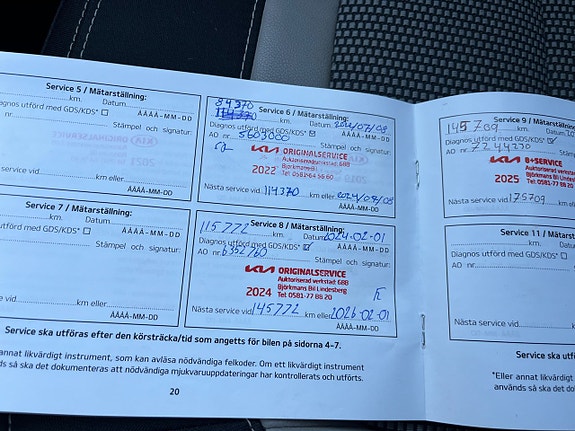 Service 5 / Mätarställning:
km. Datum
ÅÅÅÅ-MM-DD
Diagnos utförd med GDS/KDS*
nr.
Stämpel och signatur:
km eller
ÅÅÅÅ-MM-DD
84370
Service 6 / Mätarställning:
km. Datum
ÅÅÅÅ-MM-DD
Diagnos utförd med GDS/KDS*
AO nr. 5603000
Stämpel och signatur:
KIA ORIGINALSERVICE
Auktoriserad verkstad: 688
Björkmans Bil
2022 Tel 0581-64 56 60
Nästa service vid 114370 km eller
ÅÅÅÅ-MM-DD
Service 7 / Mätarställning:
km. Datum
ÅÅÅÅ-MM-DD
Diagnos utförd med GDS/KDS*
nr.
Stämpel och signatur:
vid km eller
ÅÅÅÅ-MM-DD
Service 8 / Mätarställning:
115772 km. Datum 2024-02-01
ÅÅÅÅ-MM-DD
Diagnos utförd med GDS/KDS*
AO nr. 6352760
Stämpel och signatur:
KIA ORIGINALSERVICE
Auktoriserad verkstad: 688
Björkmans Bil Lindesberg
2024 Tel 0581-77 88 20
Nästa service vid 145772 km eller 2026-02-01
ÅÅÅÅ-MM-DD
Service ska utföras efter den körsträcka/tid som angetts för bilen på sidorna 4-7.
annat likvärdigt instrument, som kan avläsa nödvändiga felkoder. Om ett likvärdigt instrument
s så ska det dokumenteras att nödvändiga mjukvaruuppdateringar har kontrollerats och utförts.
20
Service 9 / Mätarställning:
145709 km. Datum
Diagnos utförd med GDS/KDS*
AO nr. 2244230
Stämpel och
KIA B+SERVICE
Auktoriserad verkstad
Björkmans Bil Lindesberg
2025 Tel. 0581-77 88 20
Nästa service vid 175709 km eller
Service 11 /
km.
Diagnos utförd med GDS/KDS*
AO nr.
Stämpel
Nästa service vid
Service ska ut
*Eller annat likvärdigt
används så ska det do